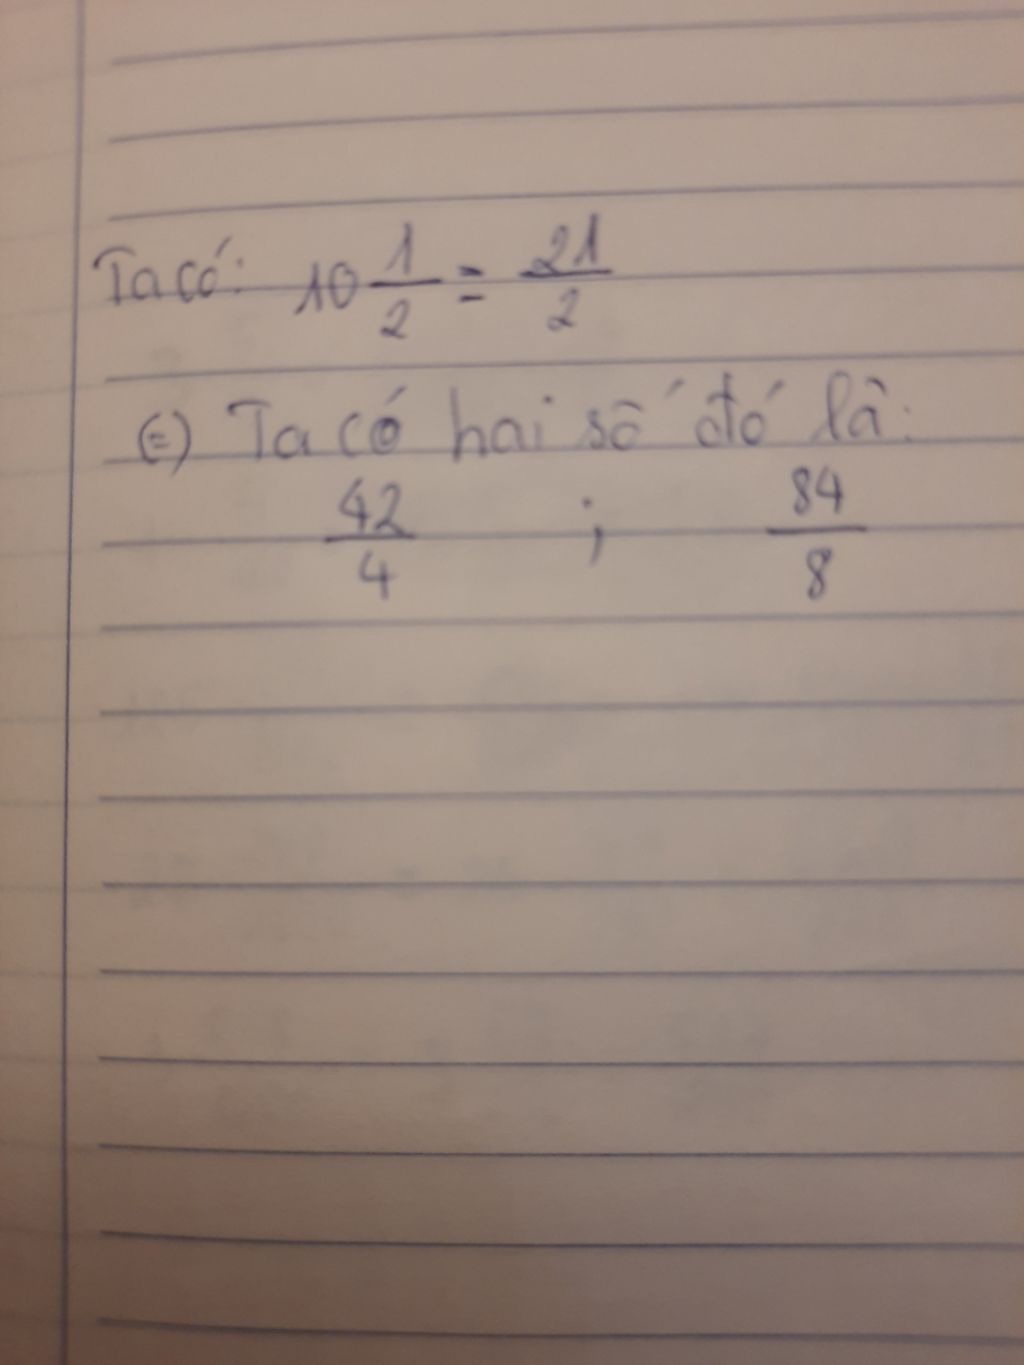 Ta có: 10 1/2 = 21/2
(=) Ta có hai số đó là:
42/4 ; 84/8